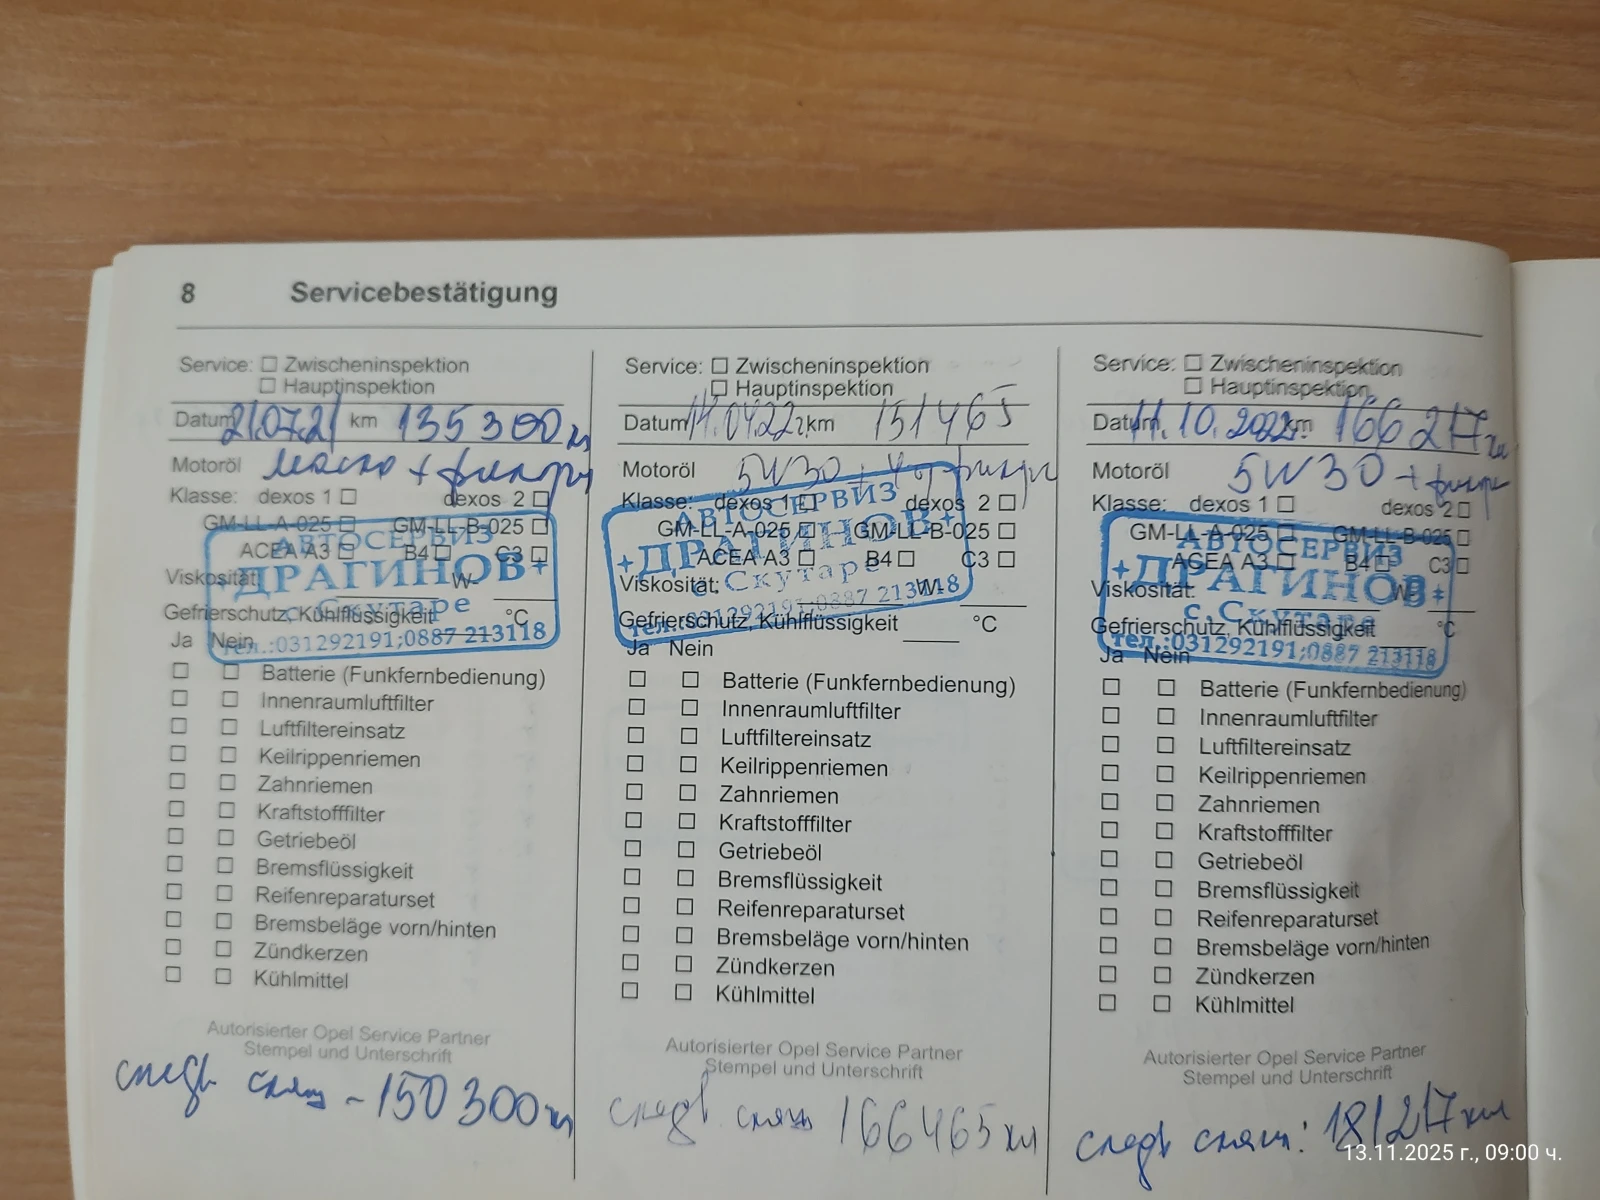 8 Servicebestätigung
Service: Zwischeninspektion
Hauptinspektion
Datum 21.07.21 km 135 300 км
Motoröl масло + филтри
Klasse: dexos 1 dexos 2
GM-LL-A-025 GM-LL-B-025
ACEA A3 B4 C3
Viskosität: W-
Gefrierschutz, Kühlflüssigkeit °C
АВТОСЕРВИЗ
ДРАГИНОВ
с. Скутаре
тел.:031292191;0887 213118
Ja Nein
Batterie (Funkfernbedienung)
Innenraumluftfilter
Luftfiltereinsatz
Keilrippenriemen
Zahnriemen
Kraftstofffilter
Getriebeöl
Bremsflüssigkeit
Reifenreparaturset
Bremsbeläge vorn/hinten
Zündkerzen
Kühlmittel
Autorisierter Opel Service Partner
Stempel und Unterschrift
следв смяна - 150 300 км
Service: Zwischeninspektion
Hauptinspektion
Datum 14.04.22г. km 151465
Motoröl 5W30 + филтри
Klasse: dexos 1 dexos 2
GM-LL-A-025 GM-LL-B-025
ACEA A3 B4 C3
Viskosität: W-
Gefrierschutz, Kühlflüssigkeit °C
АВТОСЕРВИЗ
ДРАГИНОВ
с. Скутаре
тел.:031292191;0887 213118
Ja Nein
Batterie (Funkfernbedienung)
Innenraumluftfilter
Luftfiltereinsatz
Keilrippenriemen
Zahnriemen
Kraftstofffilter
Getriebeöl
Bremsflüssigkeit
Reifenreparaturset
Bremsbeläge vorn/hinten
Zündkerzen
Kühlmittel
Autorisierter Opel Service Partner
Stempel und Unterschrift
следв смяна 166465 км
Service: Zwischeninspektion
Hauptinspektion
Datum 11.10.2022г. km 166 217 км
Motoröl 5W30 + филтри
Klasse: dexos 1 dexos 2
GM-LL-A-025 GM-LL-B-025
ACEA A3 B4 C3
Viskosität: W-
Gefrierschutz, Kühlflüssigkeit °C
АВТОСЕРВИЗ
ДРАГИНОВ
с. Скутаре
тел.:031292191;0887 213118
Ja Nein
Batterie (Funkfernbedienung)
Innenraumluftfilter
Luftfiltereinsatz
Keilrippenriemen
Zahnriemen
Kraftstofffilter
Getriebeöl
Bremsflüssigkeit
Reifenreparaturset
Bremsbeläge vorn/hinten
Zündkerzen
Kühlmittel
Autorisierter Opel Service Partner
Stempel und Unterschrift
следв смяна: 181217 км
13.11.2025 г., 09:00 ч.